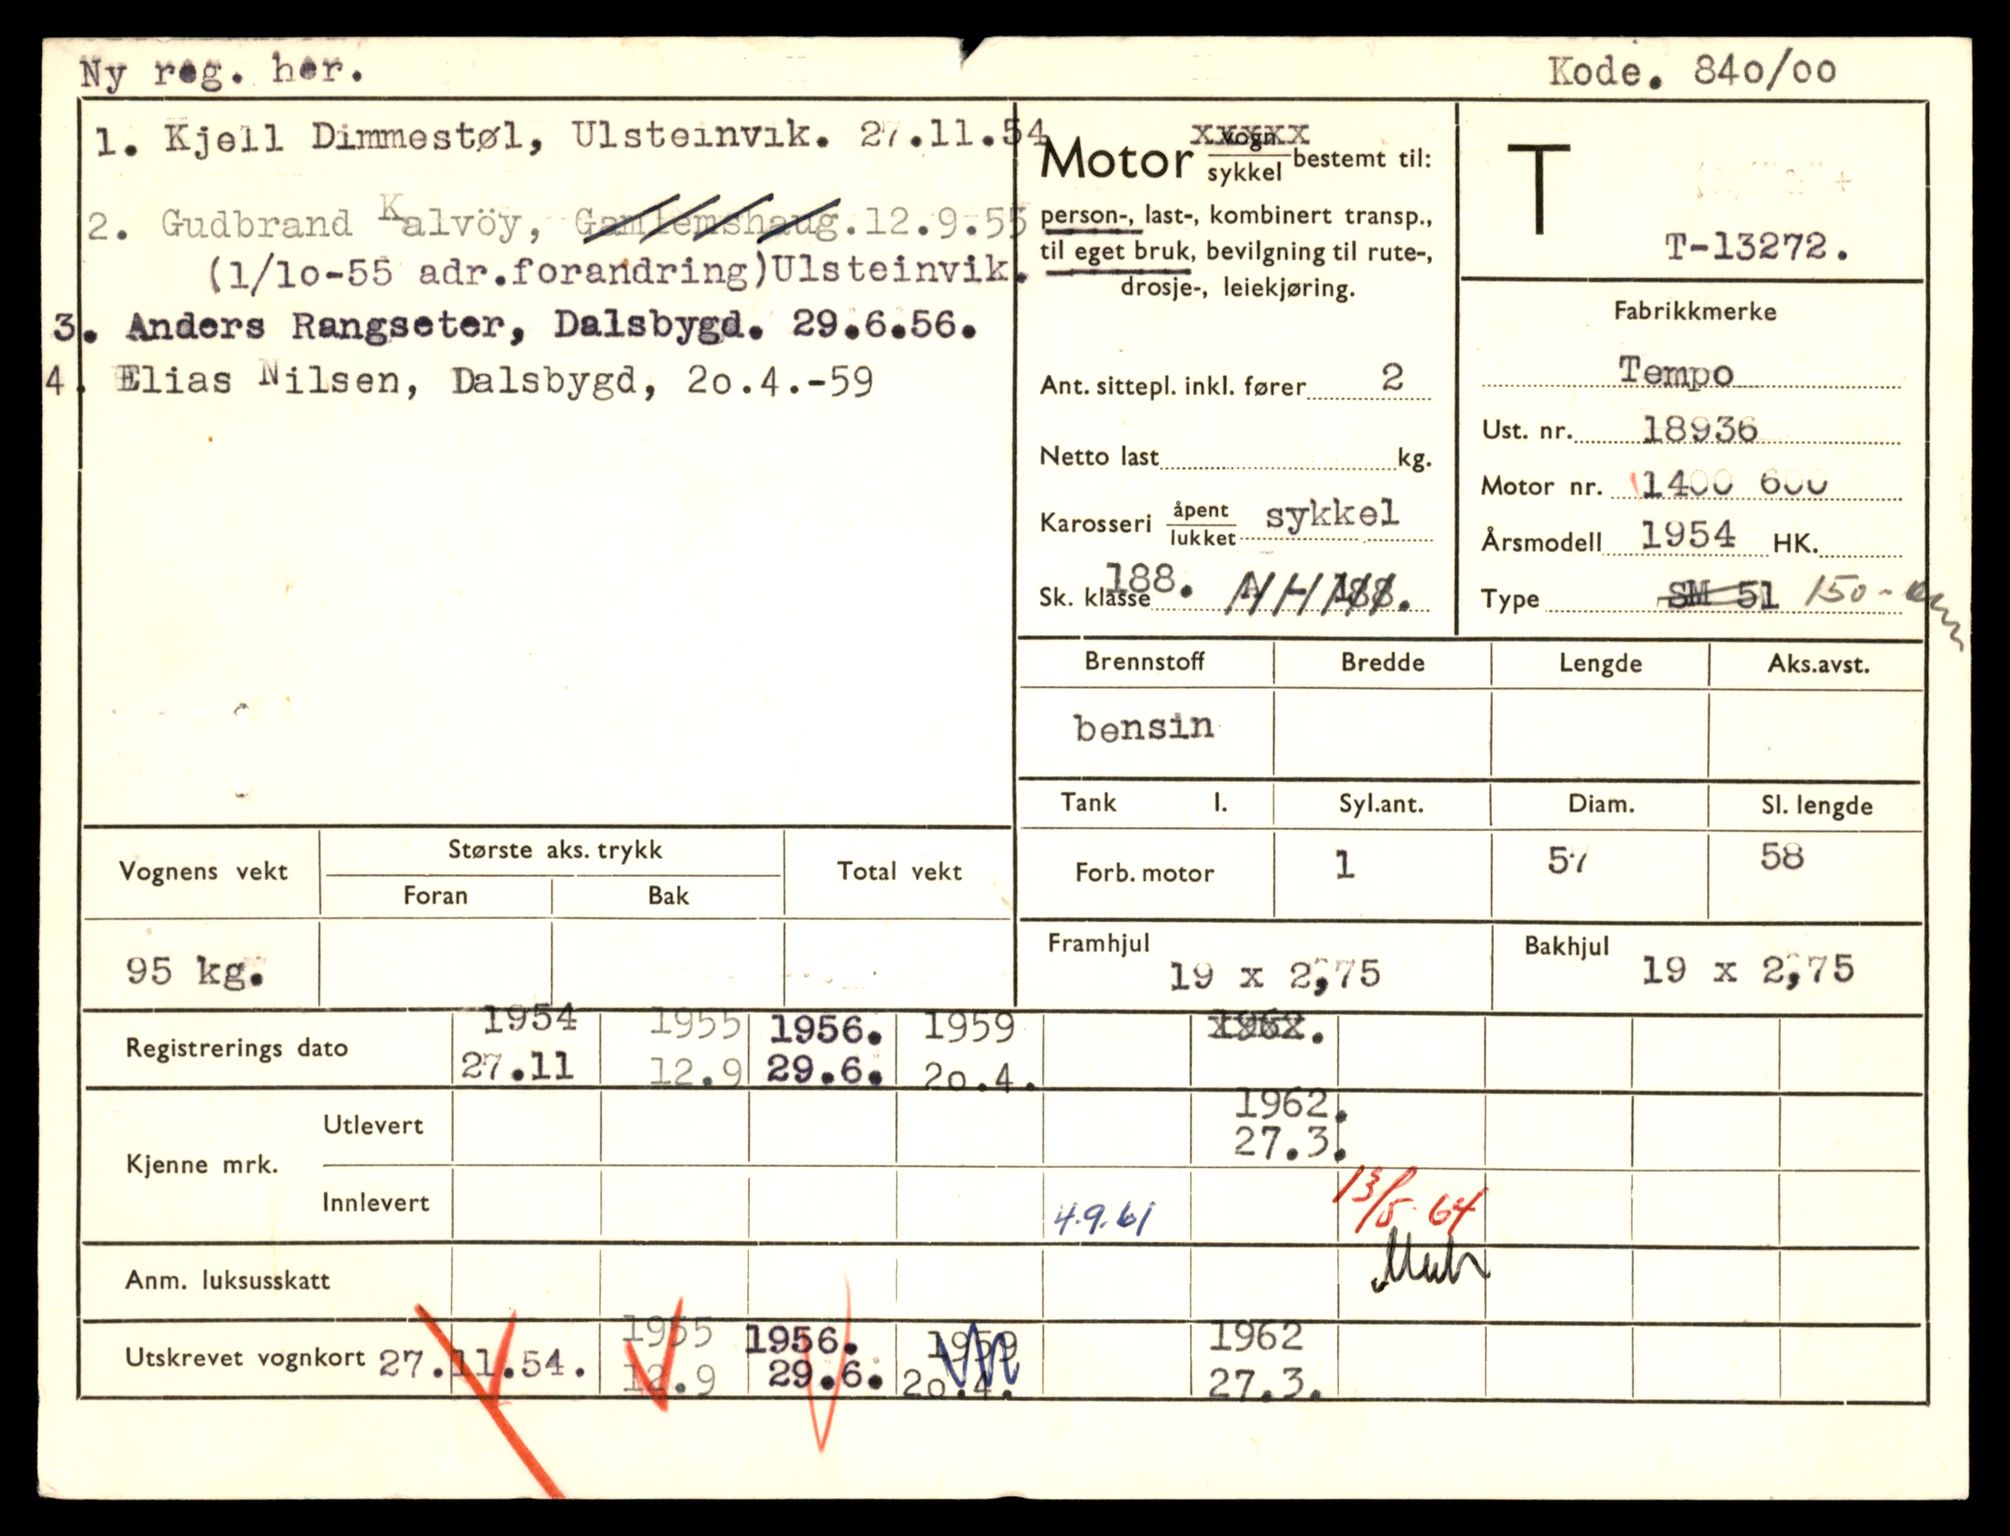 Ny reg. her.
Kode. 840/00
1. Kjell Dimmestøl, Ulsteinvik. 27.11.54
2. Gudbrand Kalvöy, Gamlemshaug. 12.9.55
(1/10-55 adr.forandring)Ulsteinvik.
3. Anders Rangseter, Dalsbygd. 29.6.56.
4. Elias Nilsen, Dalsbygd, 20.4.-59
Motor vogn xxxxx / sykkel bestemt til:
person-, last-, kombinert transp.,
til eget bruk, bevilgning til rute-,
drosje-, leiekjøring.
Ant. sittepl. inkl. fører 2
Netto last kg.
Karosseri åpent / lukket sykkel
Sk. klasse 188.
T
T-13272.
Fabrikkmerke
Tempo
Ust. nr. 18936
Motor nr. 1400 600
Årsmodell 1954 HK.
Type SM 51 150-
Brennstoff Bredde Lengde Aks.avst.
bensin
Tank l. Syl.ant. Diam. Sl. lengde
Forb. motor 1 57 58
Framhjul 19 x 2,75 Bakhjul 19 x 2,75
Vognens vekt Største aks. trykk Total vekt
Foran Bak
95 kg.
1954 1955 1956. 1959 1962.
Registrerings dato
27.11 12.9 29.6. 20.4.
Kjenne mrk.
Utlevert 1962. 27.3.
Innlevert 4.9.61 13/5-64
Anm. luksusskatt
1955 1956. 1959 1962
Utskrevet vognkort 27.11.54. 12.9 29.6. 20.4. 27.3.